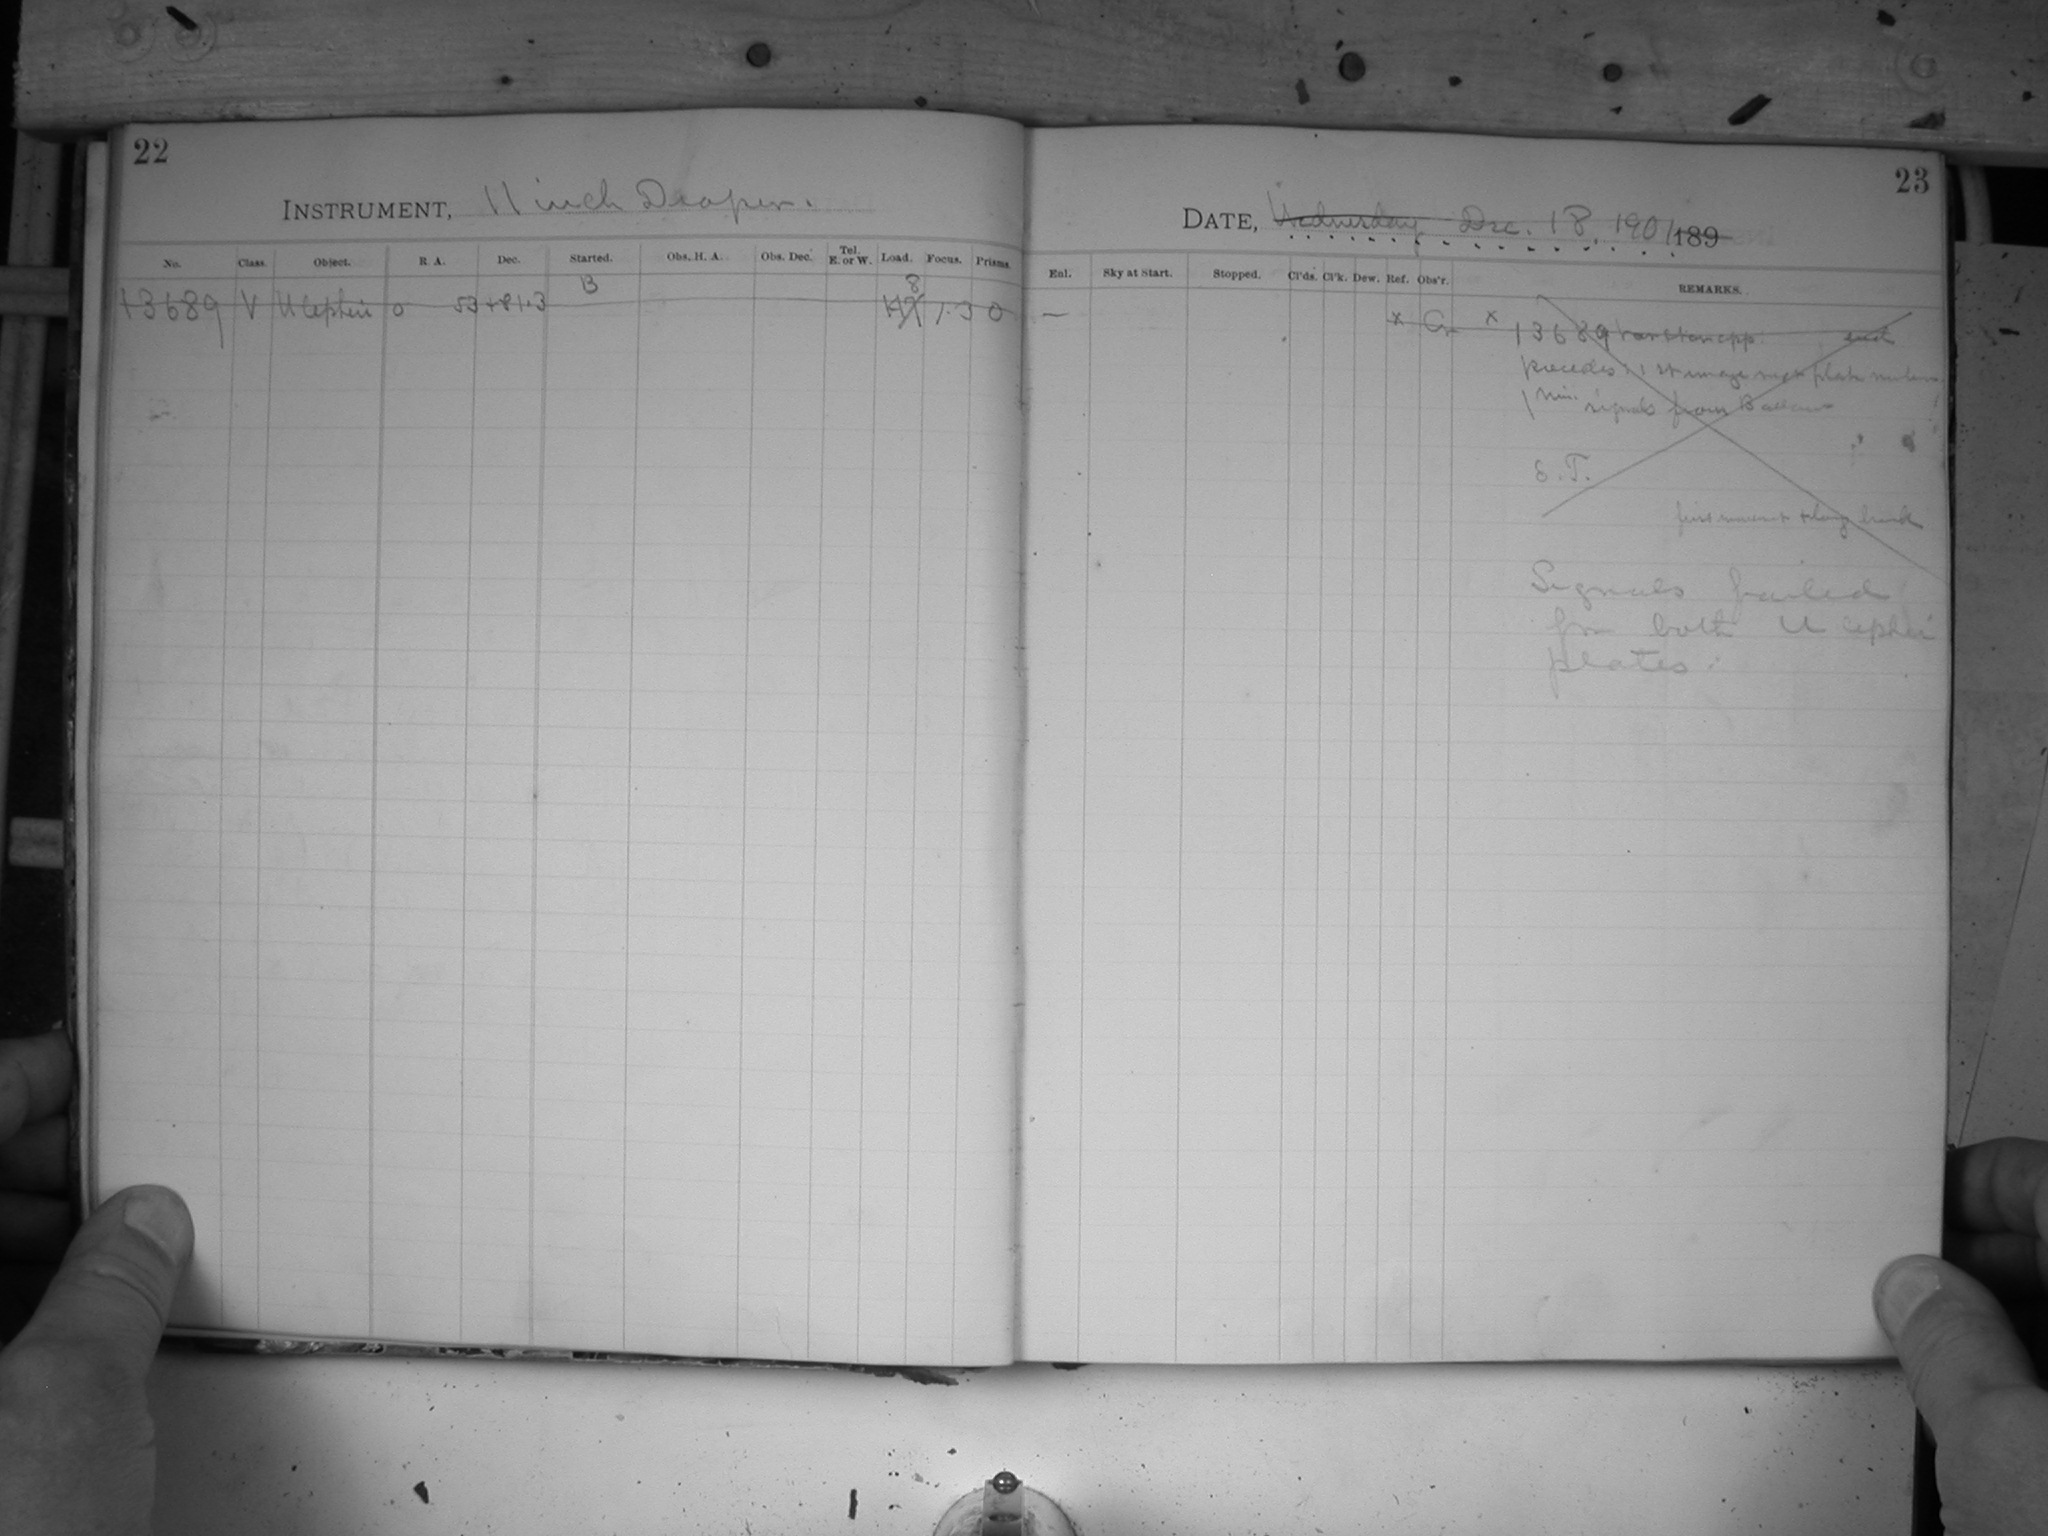 22
INSTRUMENT, 11 inch Draper.
No. Class. Object. R. A. Dec. Started. Obs. H. A. Obs. Dec. Tel. E. or W. Load. Focus. Prisms.
B 8
13689 V U Cephei 0 53 +81.3 7.3 0
23
DATE, Wednesday Dec. 18, 1901 189
Enl. Sky at Start. Stopped. Cl'ds. Cl'k. Dew. Ref. Obs'r. REMARKS.
— x x 13689 end
precedes 1st image plate
1 min. signals from
E. T.
Signals failed
for both U Cephei
plates.